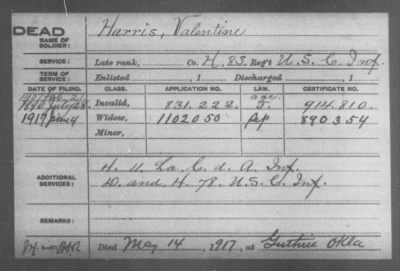 DEAD
NAME OF SOLDIER: Harris, Valentine
SERVICE: Late rank, Co. H. 83. Reg't U. S. C. Inf.
TERM OF SERVICE: Enlisted , 1 Discharged , 1
DATE OF FILING. CLASS. APPLICATION NO. LAW. CERTIFICATE NO.
1890 July 28 Invalid, 831.222 J. 914.810.
1917 Widow, 1102050 890354
Minor,
ADDITIONAL SERVICES: H. 11 La. C. d. A. Inf.
D. and H. 78. U.S.C. Inf.
REMARKS:
Died May 14, 1917, at Guthrie Okla